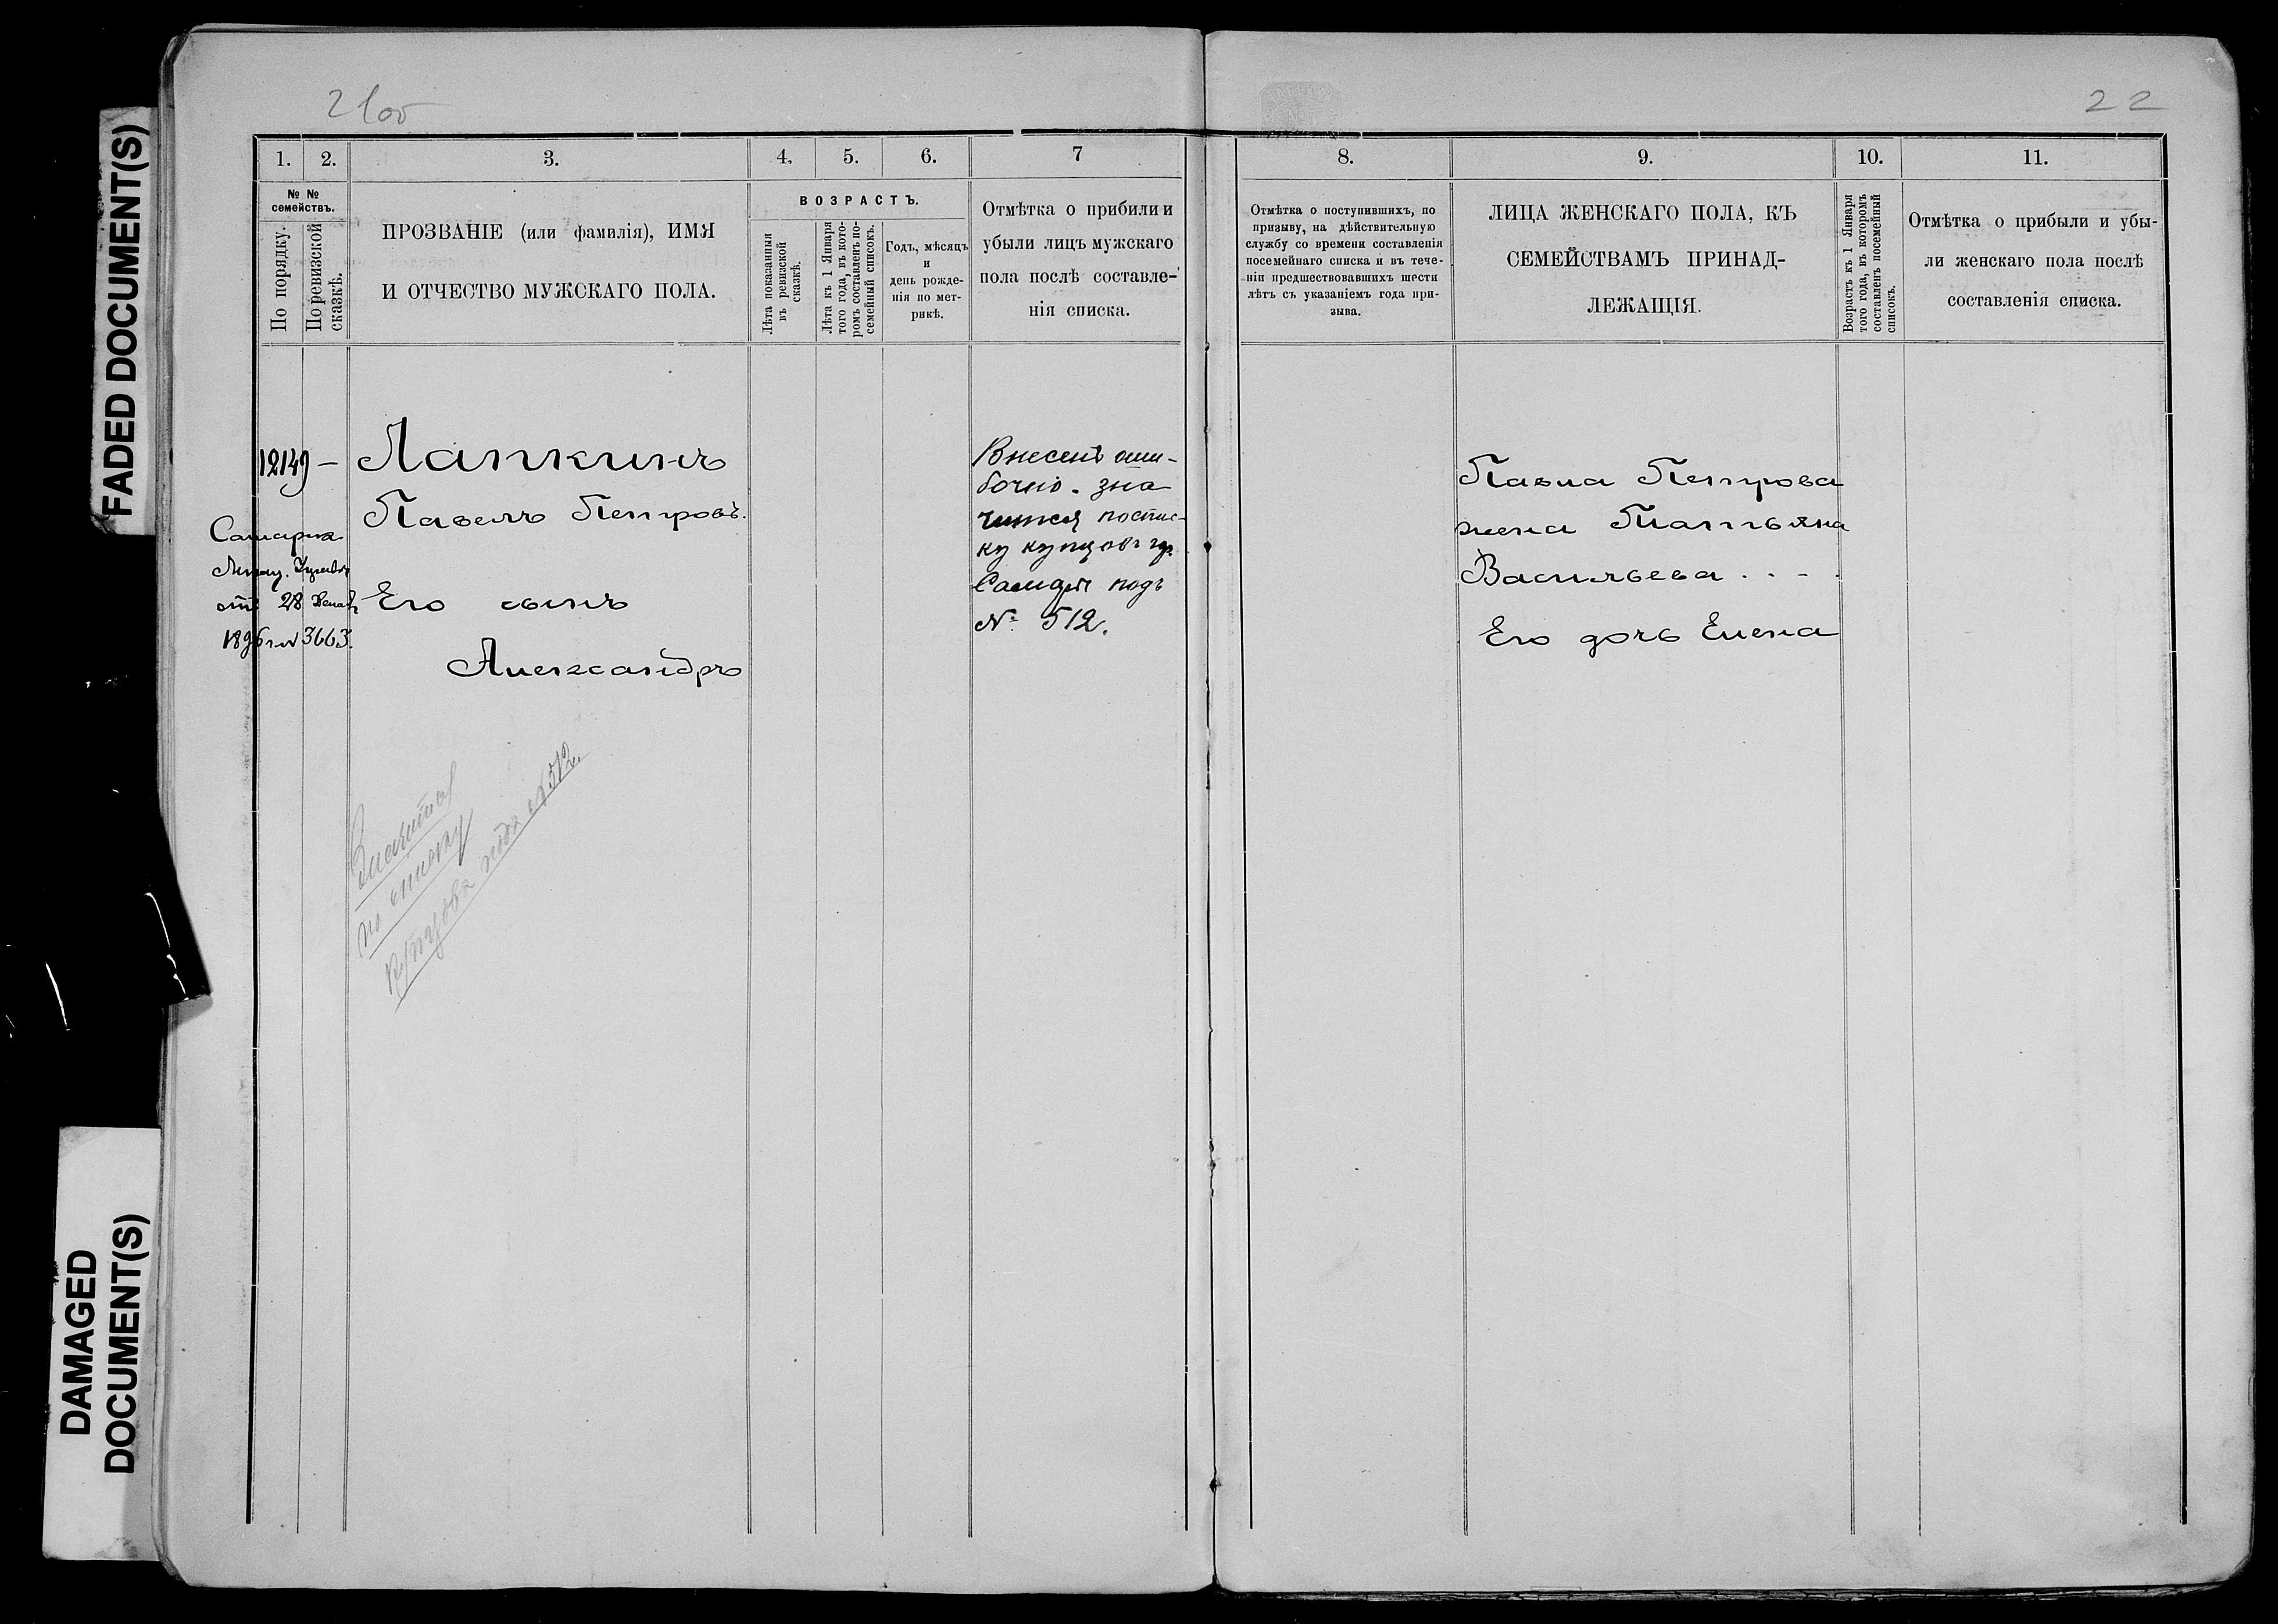 FADED DOCUMENT(S)
DAMAGED
DOCUMENT(S)
21об
22
1.
2.
3.
4.
5.
6.
7
№ №
семействъ.
По порядку.
По ревизской
сказкѣ.
ПРОЗВАНІЕ (или фамилія), ИМЯ
И ОТЧЕСТВО МУЖСКАГО ПОЛА.
ВОЗРАСТЪ.
Лѣта показанныя
въ ревизской
сказкѣ.
Лѣта къ 1 Января
того года, въ кото-
ромъ составленъ по-
семейный списокъ.
Годъ, мѣсяцъ
и
день рожде-
нія по мет-
рикѣ.
Отмѣтка о прибыли и
убыли лицъ мужскаго
пола послѣ составле-
нія списка.
12149 —
Лапкинъ
Павелъ Петровъ.
Самарск.
от 28
1896 г. № 3663.
Его сынъ
Александръ
Внесенъ оши-
бочно. зна
чится поспис-
ку купцовъ гр.
Самары подъ
№ 512.
Значится
по списку
купцовъ подъ № 512.
8.
9.
10.
11.
Отмѣтка о поступившихъ, по
призыву, на дѣйствительную
службу со времени составленія
посемейнаго списка и въ тече-
ніи предшествовавшихъ шести
лѣтъ съ указаніемъ года при-
зыва.
ЛИЦА ЖЕНСКАГО ПОЛА, КЪ
СЕМЕЙСТВАМЪ ПРИНАД-
ЛЕЖАЩІЯ.
Возрастъ къ 1 Января
того года, въ которомъ
составленъ посемейный
списокъ.
Отмѣтка о прибыли и убы-
ли женскаго пола послѣ
составленія списка.
Павла Петрова
жена Татьяна
Васильева . . - .
Его дочь Елена